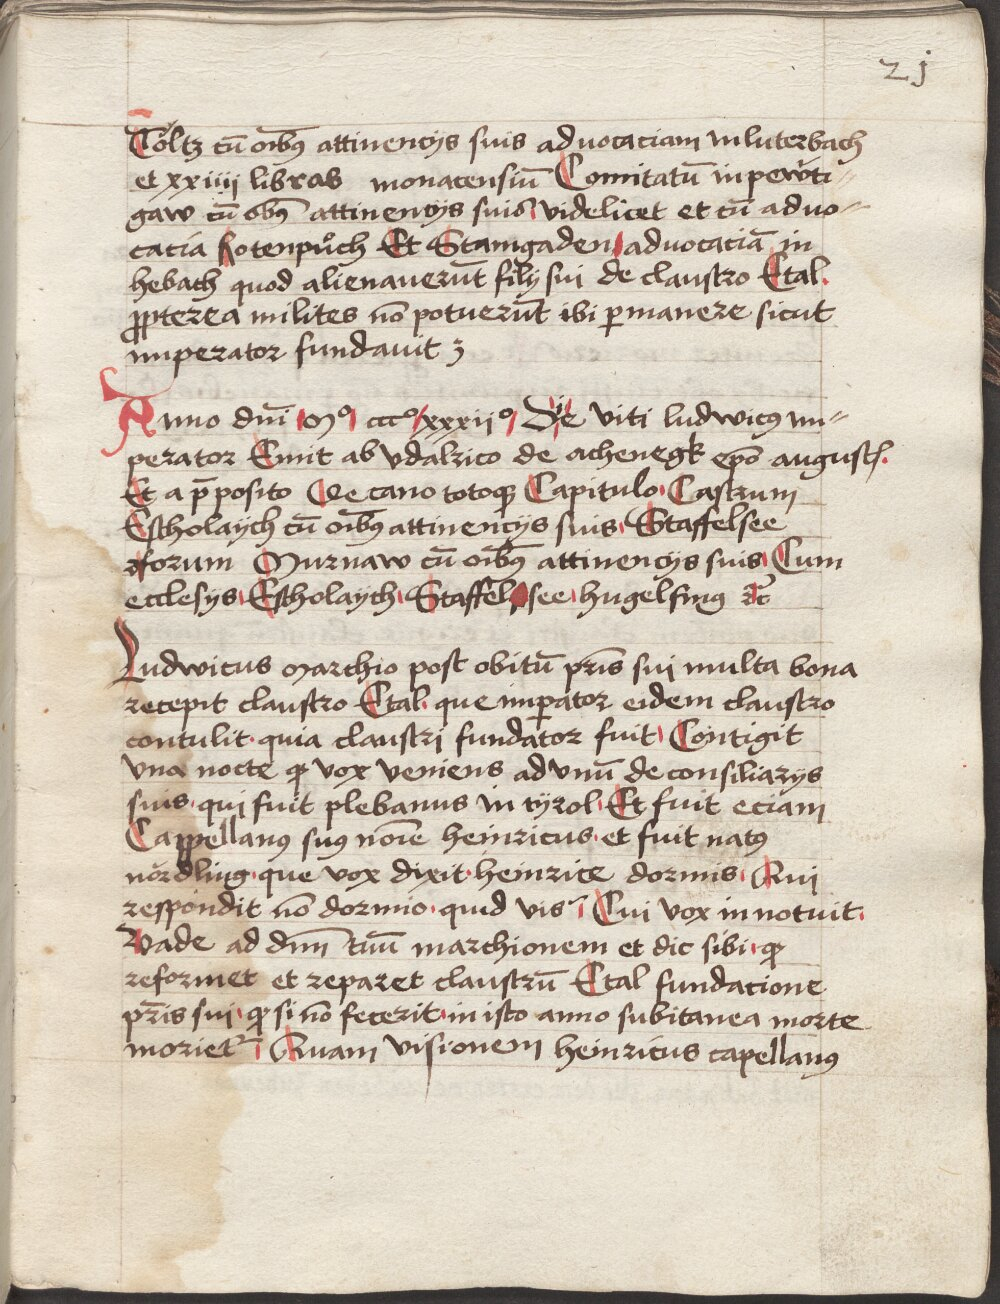 21
Töltz cū oībꝯ attinencÿs suis aduocaciam in luterbach
et xxiiij libras monacensiū Comitatū in pewrti⸗
gaw cū oībꝯ attinencÿs suis videlicet et cū aduo⸗
catia Rotenpůch Et Staingaden aduocatiā in
hebach quod alienauerūt filÿ sui de claustro Etal.
ꝓpterea milites nō potuerūt ibi ꝑmanere sicut
imperator fundauit ꝫ
Anno dn̄i Mº cccº xxxijº Die viti ludwicꝯ im⸗
perator Emit ab vdalrico de achenegk ep̄o august̄.
Et a p̄posito Decano totoqꝫ Capitulo Castrum
Escholaych cū oībꝯ attinencÿs suis Staffelsee
forum Murnaw cū oībꝯ attinencÿs suis Cum
ecclesÿs Escholaych Staffel see hugelfing ꝛc̄
Ludwicus marchio post obitū pr̄is sui multa bona
recepit claustro Etal que imꝑator eidem claustro
contulit quia claustri fundator fuit Contigit
vna nocte ꝙ vox veniens ad vnū de consiliarÿs
suis qui fuit plebanus in tÿrol Et fuit eciam
Cappellanꝯ suꝯ noīe heinricus et fuit natꝯ
nördling que vox dixit heinrice dormis Qui
respondit nō dormio quid vis Cui vox innotuit
Vade ad dn̄m tuū marchionem et dic sibi ꝙ
reformet et reparet claustrū Etal fundacione
pr̄is sui ꝙ si nō fecerit in isto anno subitanea morte
moriet᷑ Quam visionem heinricus capellanꝯ